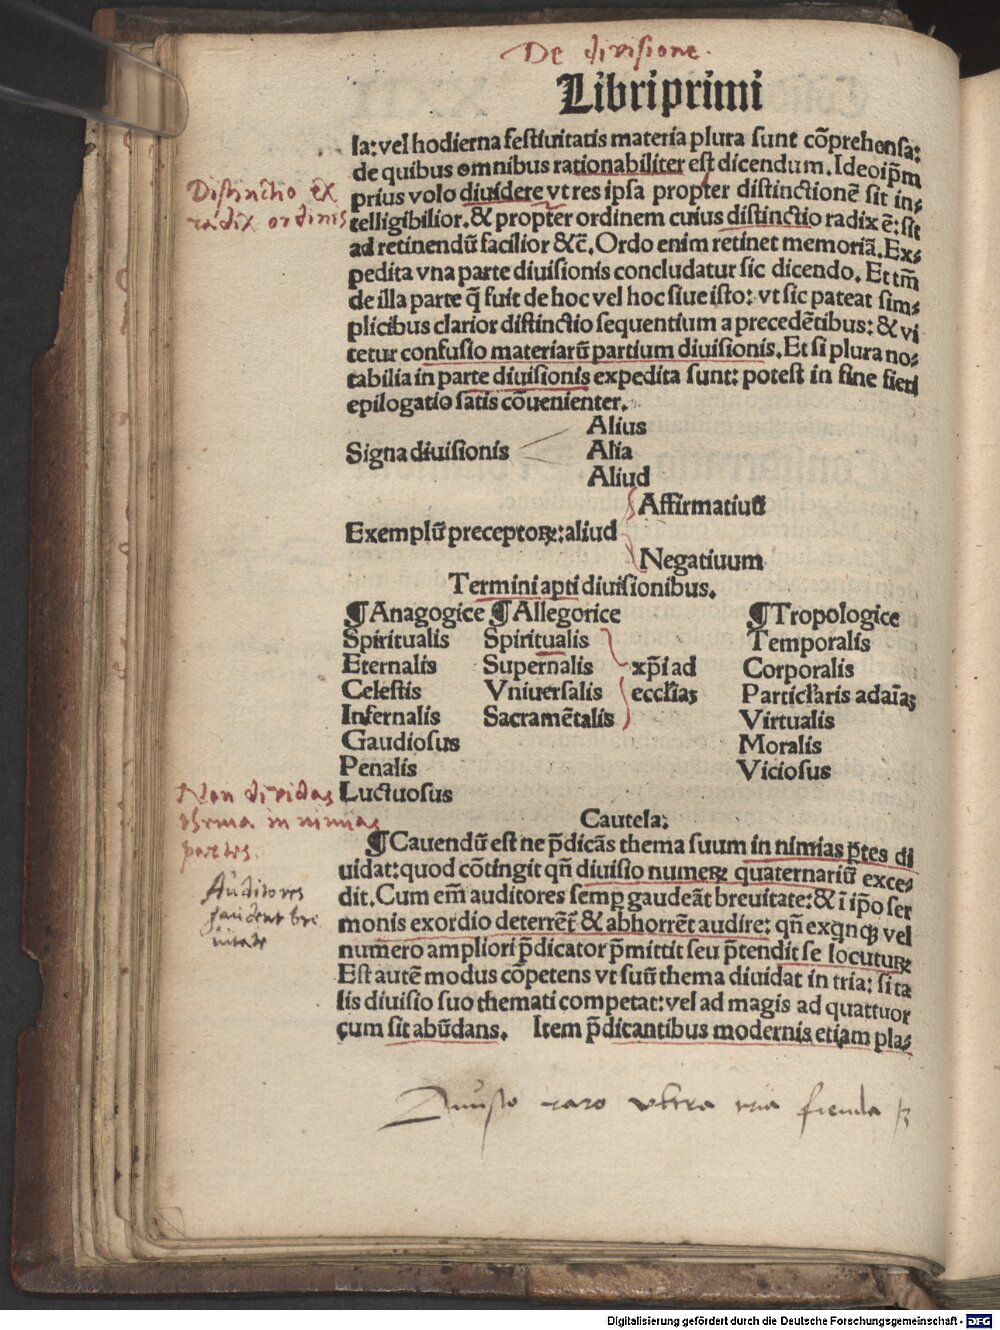 De divisione.
Libri primi
la: vel hodierna festiuitatis materia plura sunt cōprehensa:
de quibus omnibus rationabiliter est dicendum. Ideo ip̄m
Distinctio est
prius volo diuidere vt res ipsa propter distinctionē sit in⸗
radix ordinis
telligibilior. & propter ordinem cuius distinctio radix ē: sit
ad retinendū facilior &c̄. Ordo enim retinet memoriā. Ex⸗
pedita vna parte diuisionis concludatur sic dicendo. Et tm̄
de illa parte q̄ fuit de hoc vel hoc siue isto: vt sic pateat sim⸗
plicibus clarior distinctio sequentium a precedētibus: & vi
tetur confusio materiarū partium diuisionis. Et si plura no⸗
tabilia in parte diuisionis expedita sunt: potest in fine fieri
epilogatio satis cōuenienter.
Alius
Signa diuisionis Alia
Aliud
Affirmatiuū
Exemplū preceptoꝝ: aliud
Negatiuum
Termini apti diuisionibus.
¶ Anagogice ¶ Allegorice ¶ Tropologice
Spiritualis Spiritualis Temporalis
Eternalis Supernalis xp̄i ad Corporalis
Celestis Vniuersalis eccl'ias Particl'aris ad aīas
Infernalis Sacramētalis Virtualis
Gaudiosus Moralis
Penalis Viciosus
Luctuosus
Non dividas
thema in nimias
partes.
Cautela:
¶ Cauendū est ne p̄dicās thema suum in nimias ꝑtes di
uidat: quod cōtingit qn̄ diuisio numeꝝ quaternariū exce⸗
Auditores
gaudent bre
uitate
dit. Cum em̄ auditores semꝑ gaudeāt breuitate: & ī ip̄o ser
monis exordio deterrēt̄ & abhorrēt audire: qn̄ ex qnqꝫ vel
numero ampliori p̄dicator p̄mittit seu p̄tendit se locutuꝝ
Est autē modus cōpetens vt suū thema diuidat in tria: si ta
lis diuisio suo themati competat: vel ad magis ad quattuor
cum sit abūdans. Item p̄dicantibus modernis etiam pla⸗
Digitalisierung gefördert durch die Deutsche Forschungsgemeinschaft - DFG